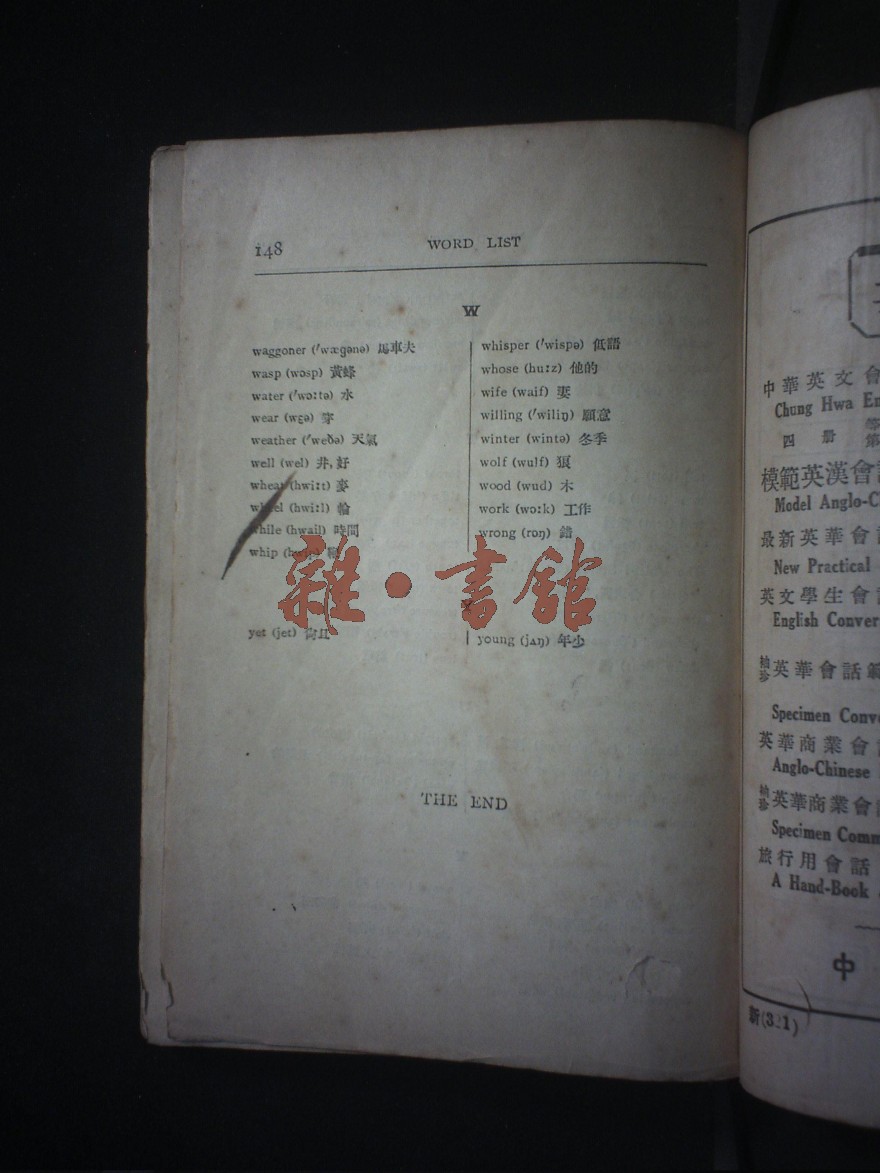 148
WORD LIST
W
waggoner (ˈwægənə) 馬車夫
wasp (wɔsp) 黃蜂
water (ˈwɔːtə) 水
wear (wɛə) 穿
weather (ˈweðə) 天氣
well (wel) 井,好
wheat (hwiːt) 麥
wheel (hwiːl) 輪
while (hwail) 時間
whip
yet (jet)
whisper (ˈwispə) 低語
whose (huːz) 他的
wife (waif) 妻
willing (ˈwiliŋ) 願意
winter (wintə) 冬季
wolf (wulf) 狼
wood (wud) 木
work (wəːk) 工作
wrong (rɔŋ) 錯
Y
young (jʌŋ) 年少
雜·書舘
THE END
中華英文會
Chung Hwa En
四册
模範英漢會
Model Anglo-C
最新英華會
New Practical
英文學生會
English Conver
袖珍英華會話範
Specimen Conv
英華商業會
Anglo-Chinese
袖珍英華商業會
Specimen Comm
旅行用會話
A Hand-Book
中
新(321)